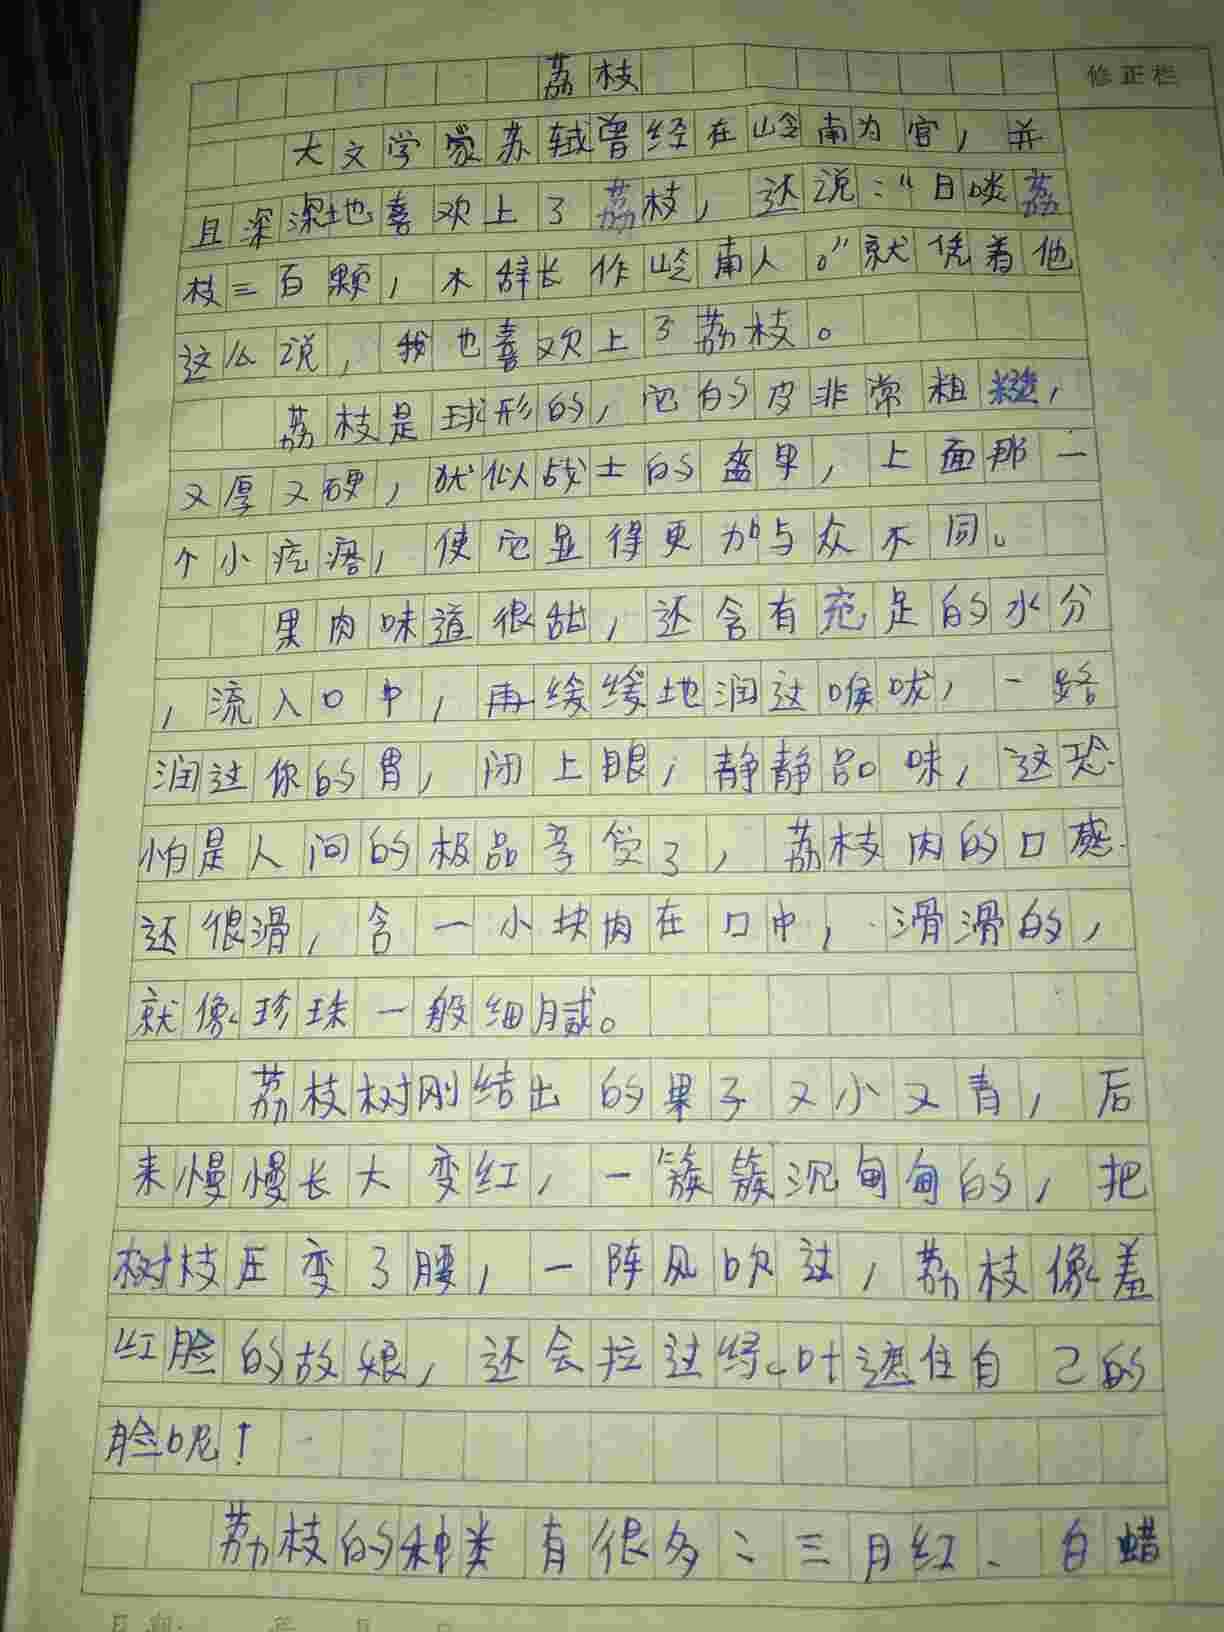 荔枝
修正栏
大文学家苏轼曾经在岭南为官，并
且深深地喜欢上了荔枝，还说：“日啖荔
枝三百颗，不辞长作岭南人。”就凭着他
这么说，我也喜欢上了荔枝。
荔枝是球形的，它的皮非常粗糙，
又厚又硬，犹似战士的盔甲，上面那一
个小疙瘩，使它显得更加与众不同。
果肉味道很甜，还含有充足的水分
，流入口中，再缓缓地润过喉咙，一路
润过你的胃，闭上眼，静静品味，这恐
怕是人间的极品享受了，荔枝肉的口感
还很滑，含一小块肉在口中，滑滑的，
就像珍珠一般细腻。
荔枝树刚结出的果子又小又青，后
来慢慢长大变红，一簇簇沉甸甸的，把
树枝压变了腰，一阵风吹过，荔枝像羞
红脸的故娘，还会拉过绿叶遮住自己的
脸呢！
荔枝的种类有很多：三月红、白蜡